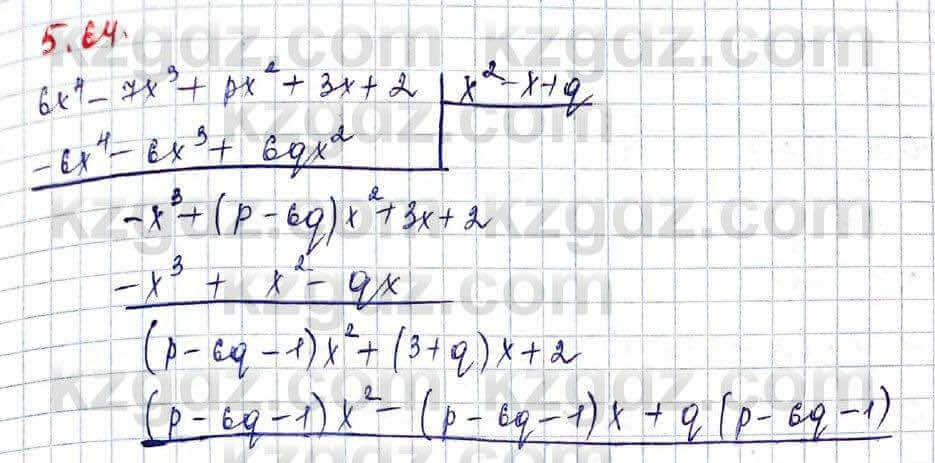 5.64.
6x⁴ - 7x³ + px² + 3x + 2 | x² - x + q
- 6x⁴ - 6x³ + 6qx²
- x³ + (p - 6q)x² + 3x + 2
- x³ + x² - qx
(p - 6q - 1)x² + (3 + q)x + 2
(p - 6q - 1)x² - (p - 6q - 1)x + q(p - 6q - 1)
kzgdz.com